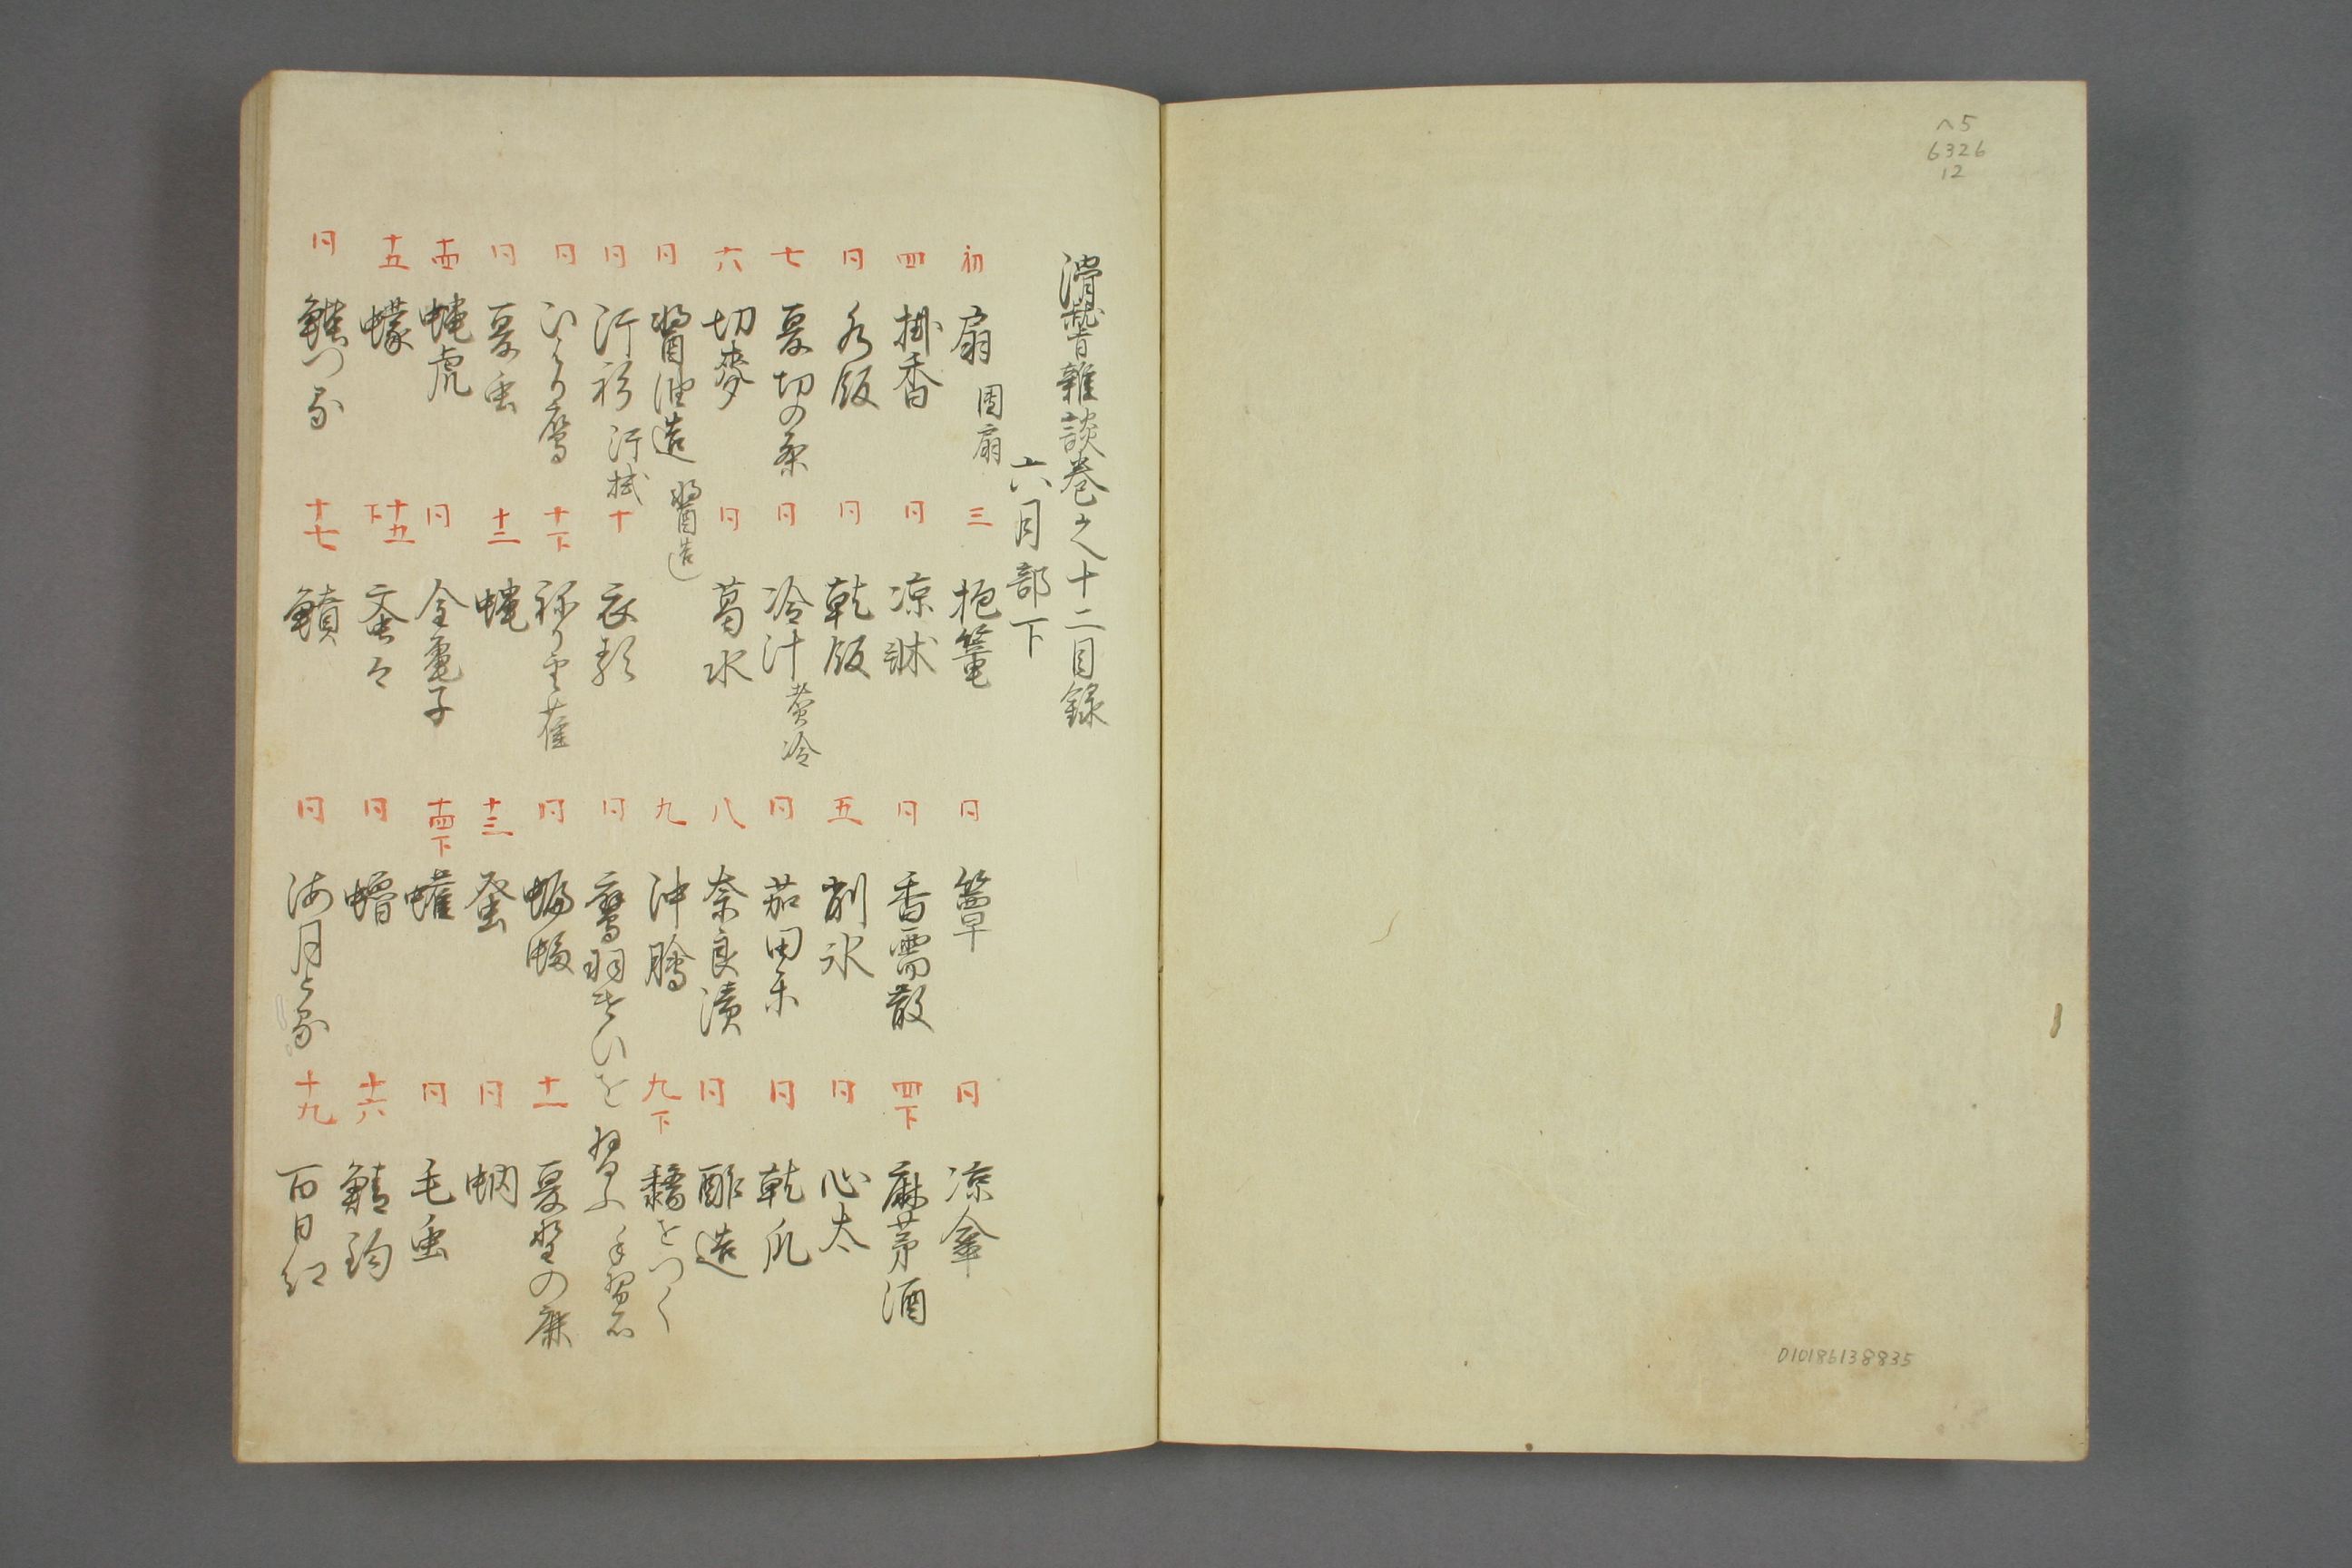 ヘ5
6326
12
010186138835
滑稽雑談巻之十二目録
六月部下
初 扇 団扇 三 抱篭 同 簟 同 凉傘
四 掛香 同 凉牀 同 香需散 四下 麻茅酒
同 水飯 同 乾飯 五 削氷 同 心太
七 夏切の茶 同 冷汁 煮冷 同 茄田楽 同 乾瓜
六 切麦 同 葛水 八 奈良漬 同 酢造
同 醤油造 醤造 九 沖膾 九下 黐をつく
同 汗衫 汗拭 十 衣類 同 鷹羽 習ふ
同 鷹 十下 ねり雲雀 同 蝙蝠 十一 夏野の鹿
同 夏虫 十二 蝿 十三 蚤 同 蚋
十四 蝿虎 同 金亀子 十四下 同 毛虫
十五 蠓 十五下 同 十六 鯖釣
同 十七 同 海月とる 十九 百日紅